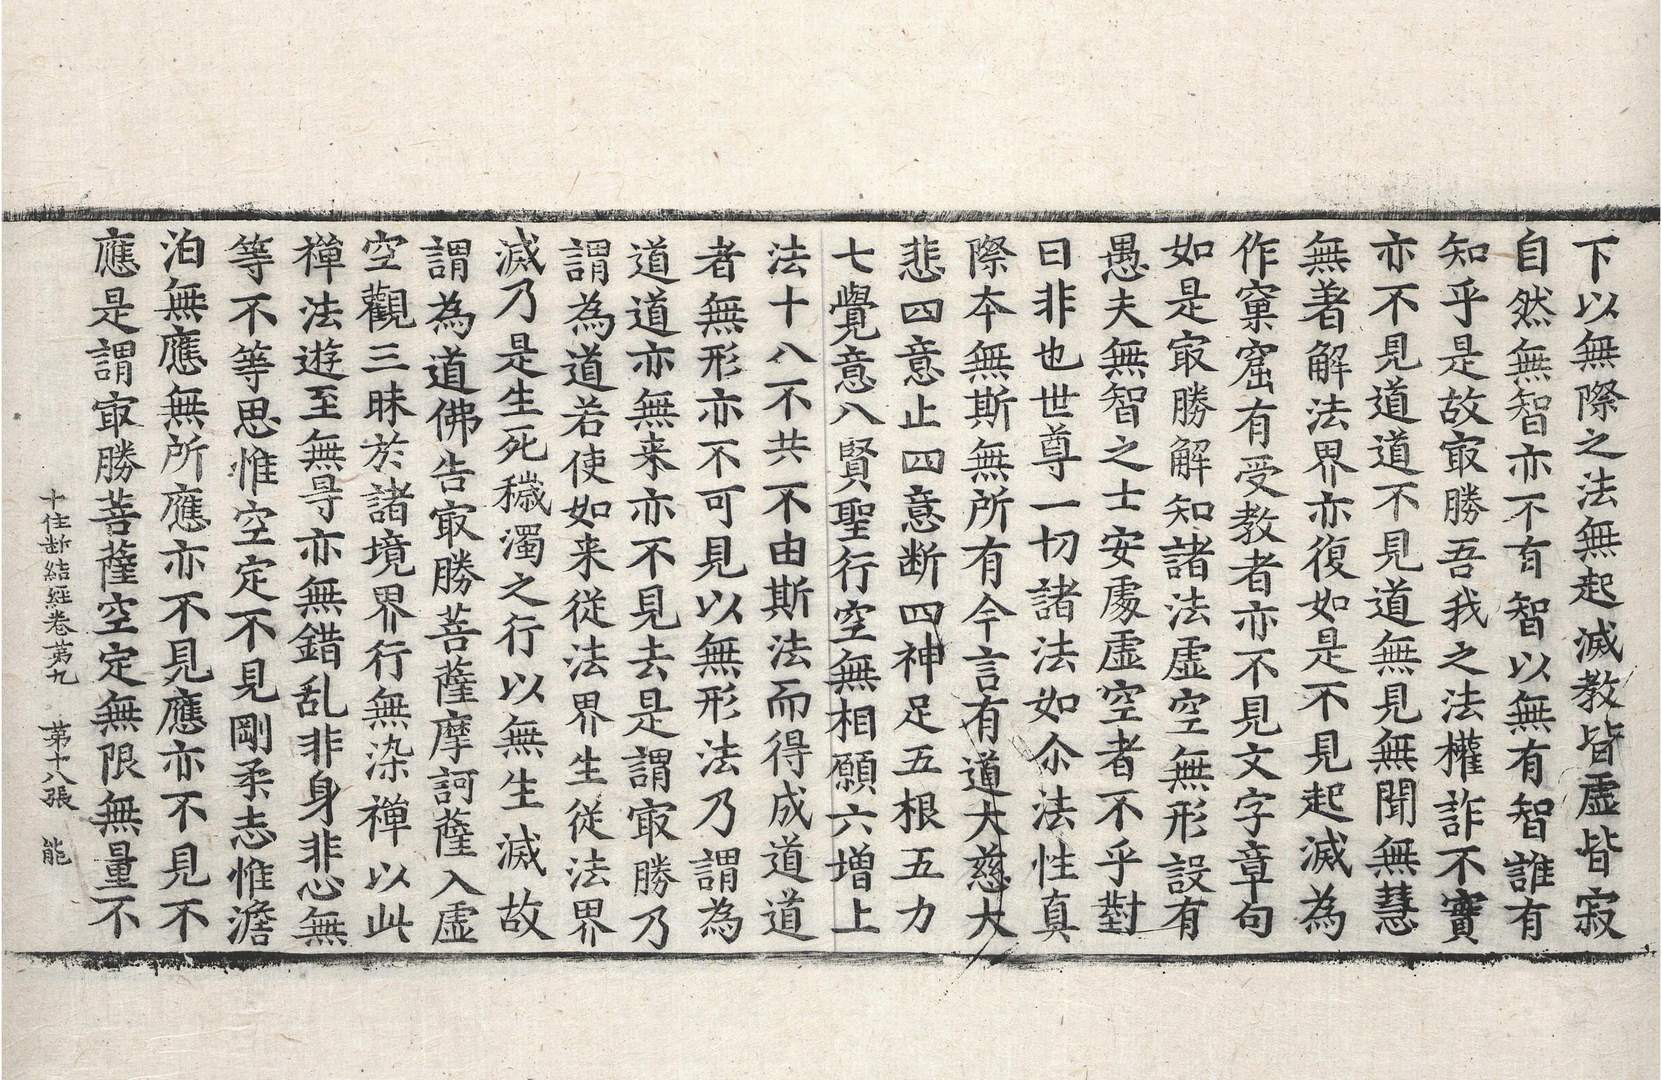 下以無際之法無起滅教皆虛皆寂
自然無智亦不有智以無有智誰有
知乎是故㝡勝吾我之法權詐不實
亦不見道道不見道無見無聞無慧
無著解法界亦復如是不見起滅為
作窠窟有受教者亦不見文字章句
如是㝡勝解知諸法虛空無形設有
愚夫無智之士安處虛空者不乎對
曰非也世尊一切諸法如尒法性真
際本無斯無所有今言有道大慈大
悲四意止四意断四神足五根五力
七覺意八賢聖行空無相願六增上
法十八不共不由斯法而得成道道
者無形亦不可見以無形法乃謂為
道道亦無来亦不見去是謂㝡勝乃
謂為道若使如来從法界生從法界
滅乃是生死穢濁之行以無生滅故
謂為道佛告㝡勝菩薩摩訶薩入虛
空觀三昧於諸境界行無染禪以此
禪法遊至無㝵亦無錯乱非身非心無
等不等思惟空定不見剛柔志惟澹
泊無應無所應亦不見應亦不見不
應是謂㝡勝菩薩空定無限無量不
十住断結経卷第九 第十八張 能